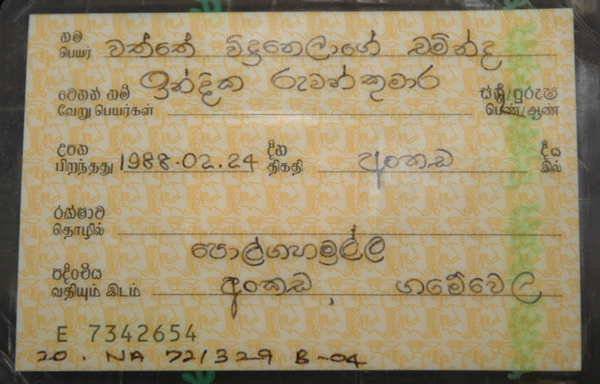 නම
பெயர் වත්තේ විදුනෙලාගේ චමින්ද
ඉන්දික රුවන්කුමාර
වෙනත් නම්
வேறு பெயர்கள்
ස්ත්‍රී/පුරුෂ
பெண்/ஆண்
උපන
பிறந்தது 1988.02.24 දින
திகதி අංකඩ දීය
இல்
රක්ෂාව
தொழில்
පොල්ගහමුල්ල
පදිංචිය
வதியும் இடம் අංකඩ, ගමේවෙල
E 7342654
20. NA 721329 B-04